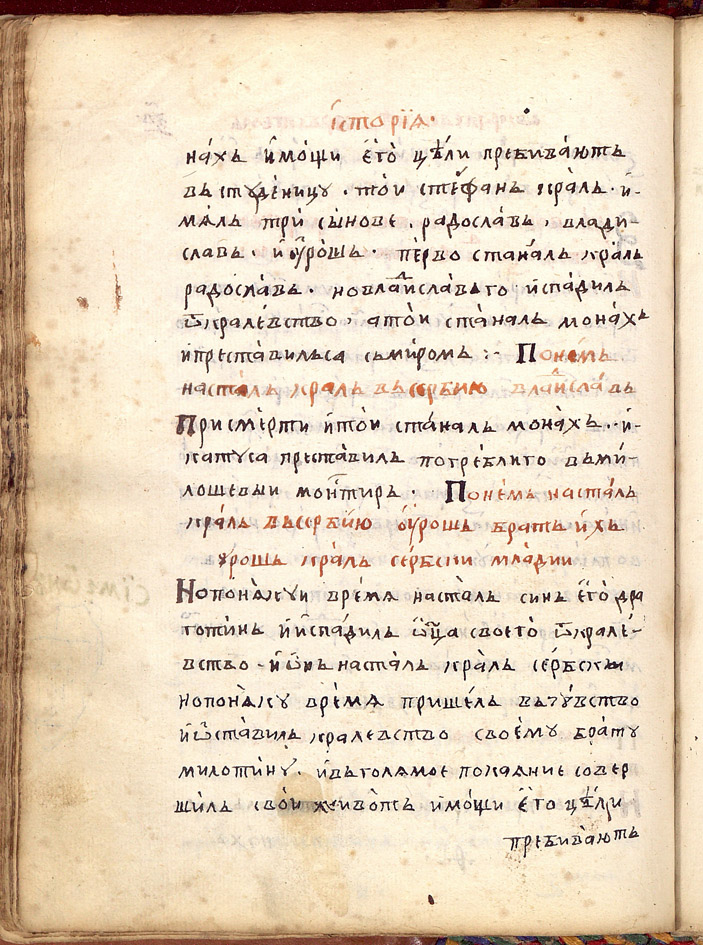 їсторїѧ·
нахъ и мощи єго цѣли пребиваютъ
въ студеницу · той стефанъ краль · и-
мялъ три сынове · радославъ · влади-
славъ · и ѹрошъ · перво станалъ краль
радославъ · но влаⷣиславъ го испадилъ
ѿ кралевство, а той станалъ монахъ
и преставилъса съ миромъ :· По немъ
насталъ краль въ сербию влаⷣиславъ
При смерти и той станалъ монахъ · и-
преставилъ погребли го въ ми-
лошевыи монⷭтиръ · По немъ насталъ
краль въ сербїю ѹрошъ братъ ихъ
ѹрошъ краль сербски младии
Но по някуи время насталъ синъ єго дра
готинъ и испадилъ ѿца своего ѿ крале-
вство · и ѡнъ насталъ краль сербскы
но по няку время пришелъ въ чувство
и ѡставилъ кралевство своєму брату
милотину · и въ голямоє покаяниє совер
шилъ свои животъ и мощи єго цѣли
пребиваютъ